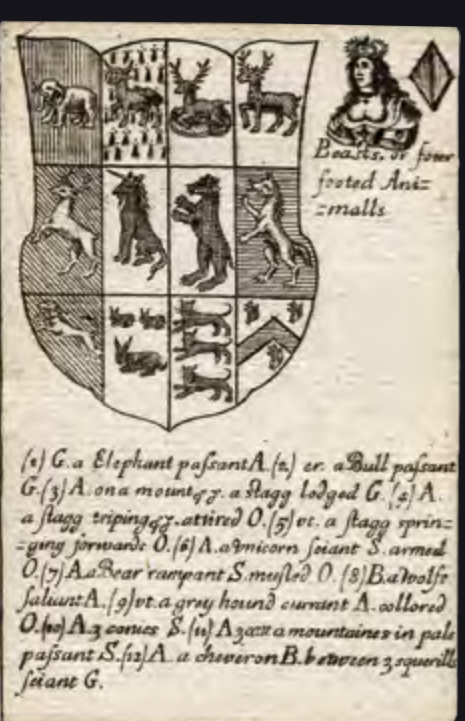 Beasts, or fower
footed Ani=
=malls
(1) G. a Elephant paſsant A. (2) er. a Bull paſsant
G. (3) A. on a mount a ſtagg lodged G. (4) A.
a ſtagg triping attired O. (5) vt. a ſtagg sprin=
=ging forwards O. (6) A. a vnicorn ſeiant S. armed
O. (7) A. a Bear rampant S. muſled O. (8) B. a wolfe
ſaliant A. (9) vt. a grey hound currant A. collored
O. (10) A. 3 conies S. (11) A 3 a mountaines in pale
paſsant S. (12) A. a cheveron B. between 3 squerills
ſeiant G.